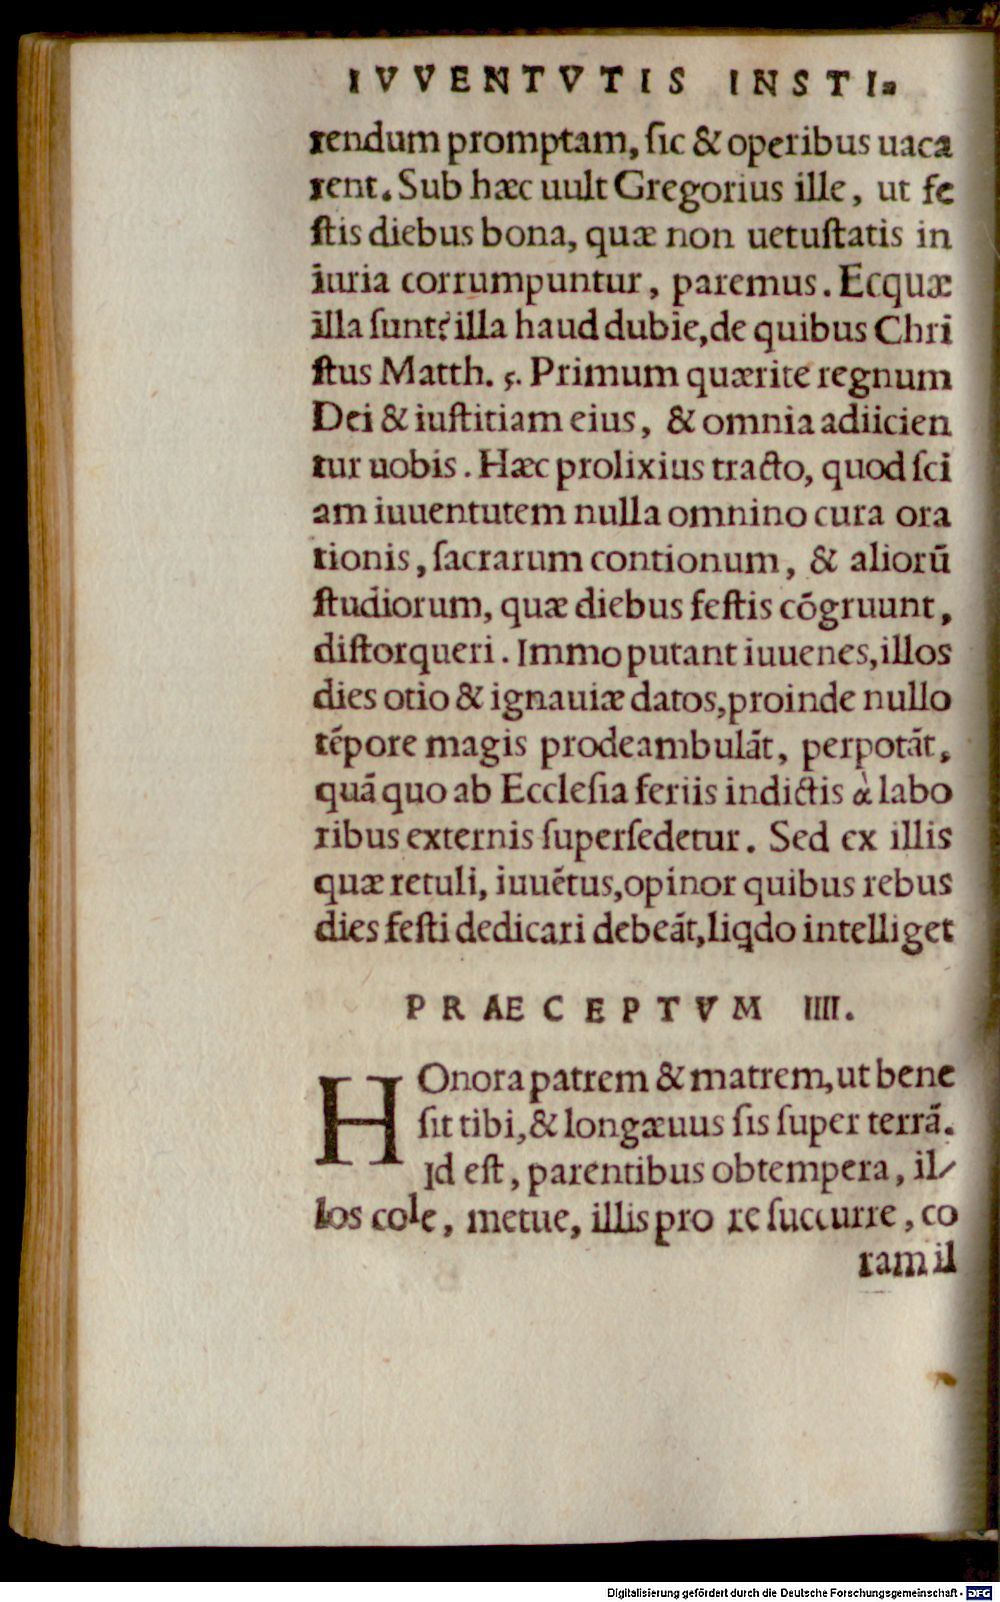 IVVENTVTIS INSTI⸗
rendum promptam, ſic & operibus uaca
rent. Sub hæc uult Gregorius ille, ut fe
ſtis diebus bona, quæ non uetuſtatis in
iuria corrumpuntur, paremus. Ecquæ
illa ſunt? illa haud dubie, de quibus Chri
ſtus Matth. 5. Primum quærite regnum
Dei & iuſtitiam eius, & omnia adiicien
tur uobis. Hæc prolixius tracto, quod ſci
am iuuentutem nulla omnino cura ora
tionis, ſacrarum contionum, & aliorū
ſtudiorum, quæ diebus feſtis cōgruunt,
diſtorqueri. Immo putant iuuenes, illos
dies otio & ignauiæ datos, proinde nullo
tēpore magis prodeambulāt, perpotāt,
quā quo ab Eccleſia feriis indictis à labo
ribus externis ſuperſedetur. Sed ex illis
quæ retuli, iuuētus, opinor quibus rebus
dies feſti dedicari debeāt, liq̇do intelliget
PRAECEPTVM IIII.
HOnora patrem & matrem, ut bene
ſit tibi, & longæuus ſis ſuper terrā.
Id eſt, parentibus obtempera, il⸗
los cole, metue, illis pro re ſuccurre, co
ram il
Digitalisierung gefördert durch die Deutsche Forschungsgemeinschaft - DFG